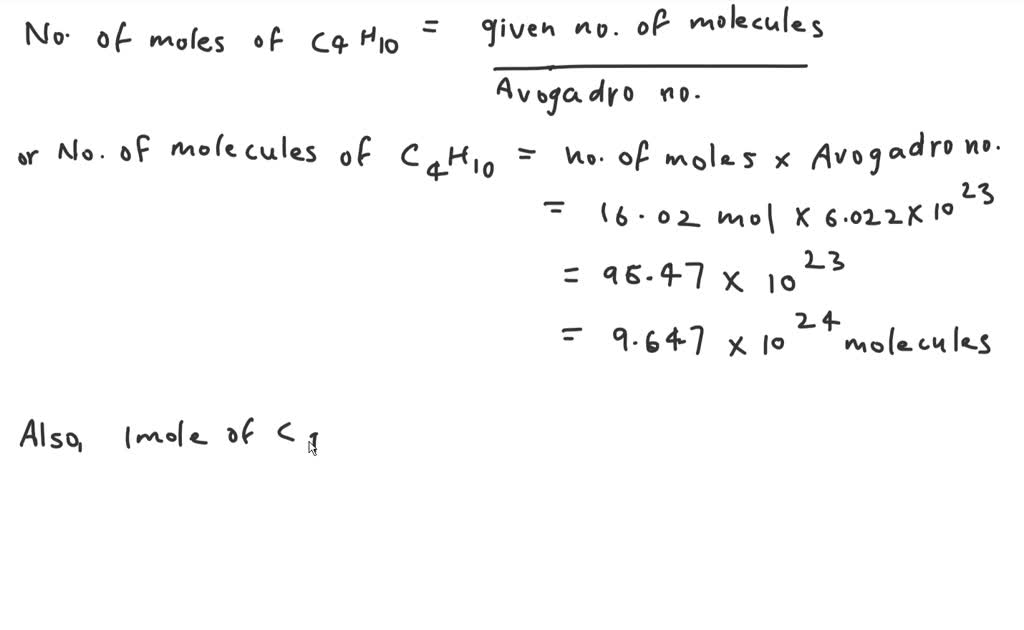 No. of moles of C4H10 = given no. of molecules
Avogadro no.
or No. of molecules of C4H10 = no. of moles x Avogadro no.
= 16.02 mol x 6.022 x 10^23
= 96.47 x 10^23
= 9.647 x 10^24 molecules
Also, 1mole of C